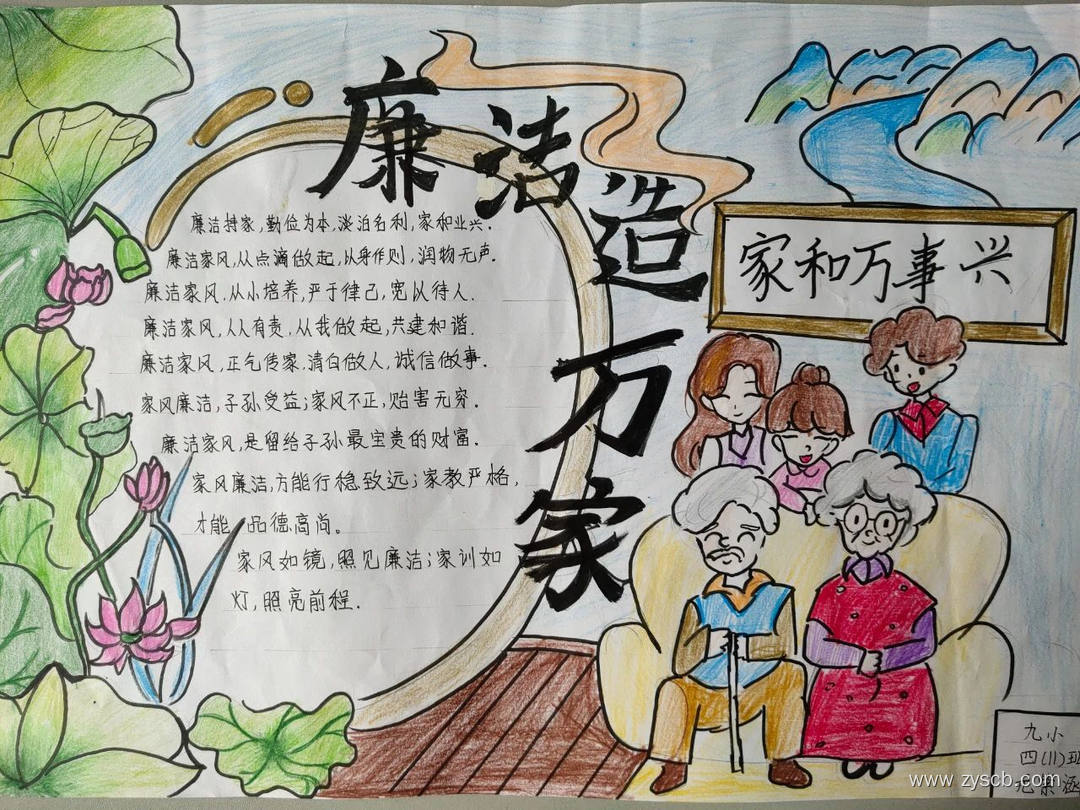 廉洁造万家
家和万事兴
廉洁持家,勤俭为本,淡泊名利,家和业兴.
廉洁家风,从点滴做起,以身作则,润物无声.
廉洁家风,从小培养,严于律己,宽以待人.
廉洁家风,人人有责,从我做起,共建和谐.
廉洁家风,正气传家.清白做人,诚信做事.
家风廉洁,子孙受益;家风不正,贻害无穷.
廉洁家风,是留给子孙最宝贵的财富.
家风廉洁,方能行稳致远;家教严格,
才能品德高尚。
家风如镜,照见廉洁;家训如
灯,照亮前程.
九小
四(11)班
www.zyscb.com